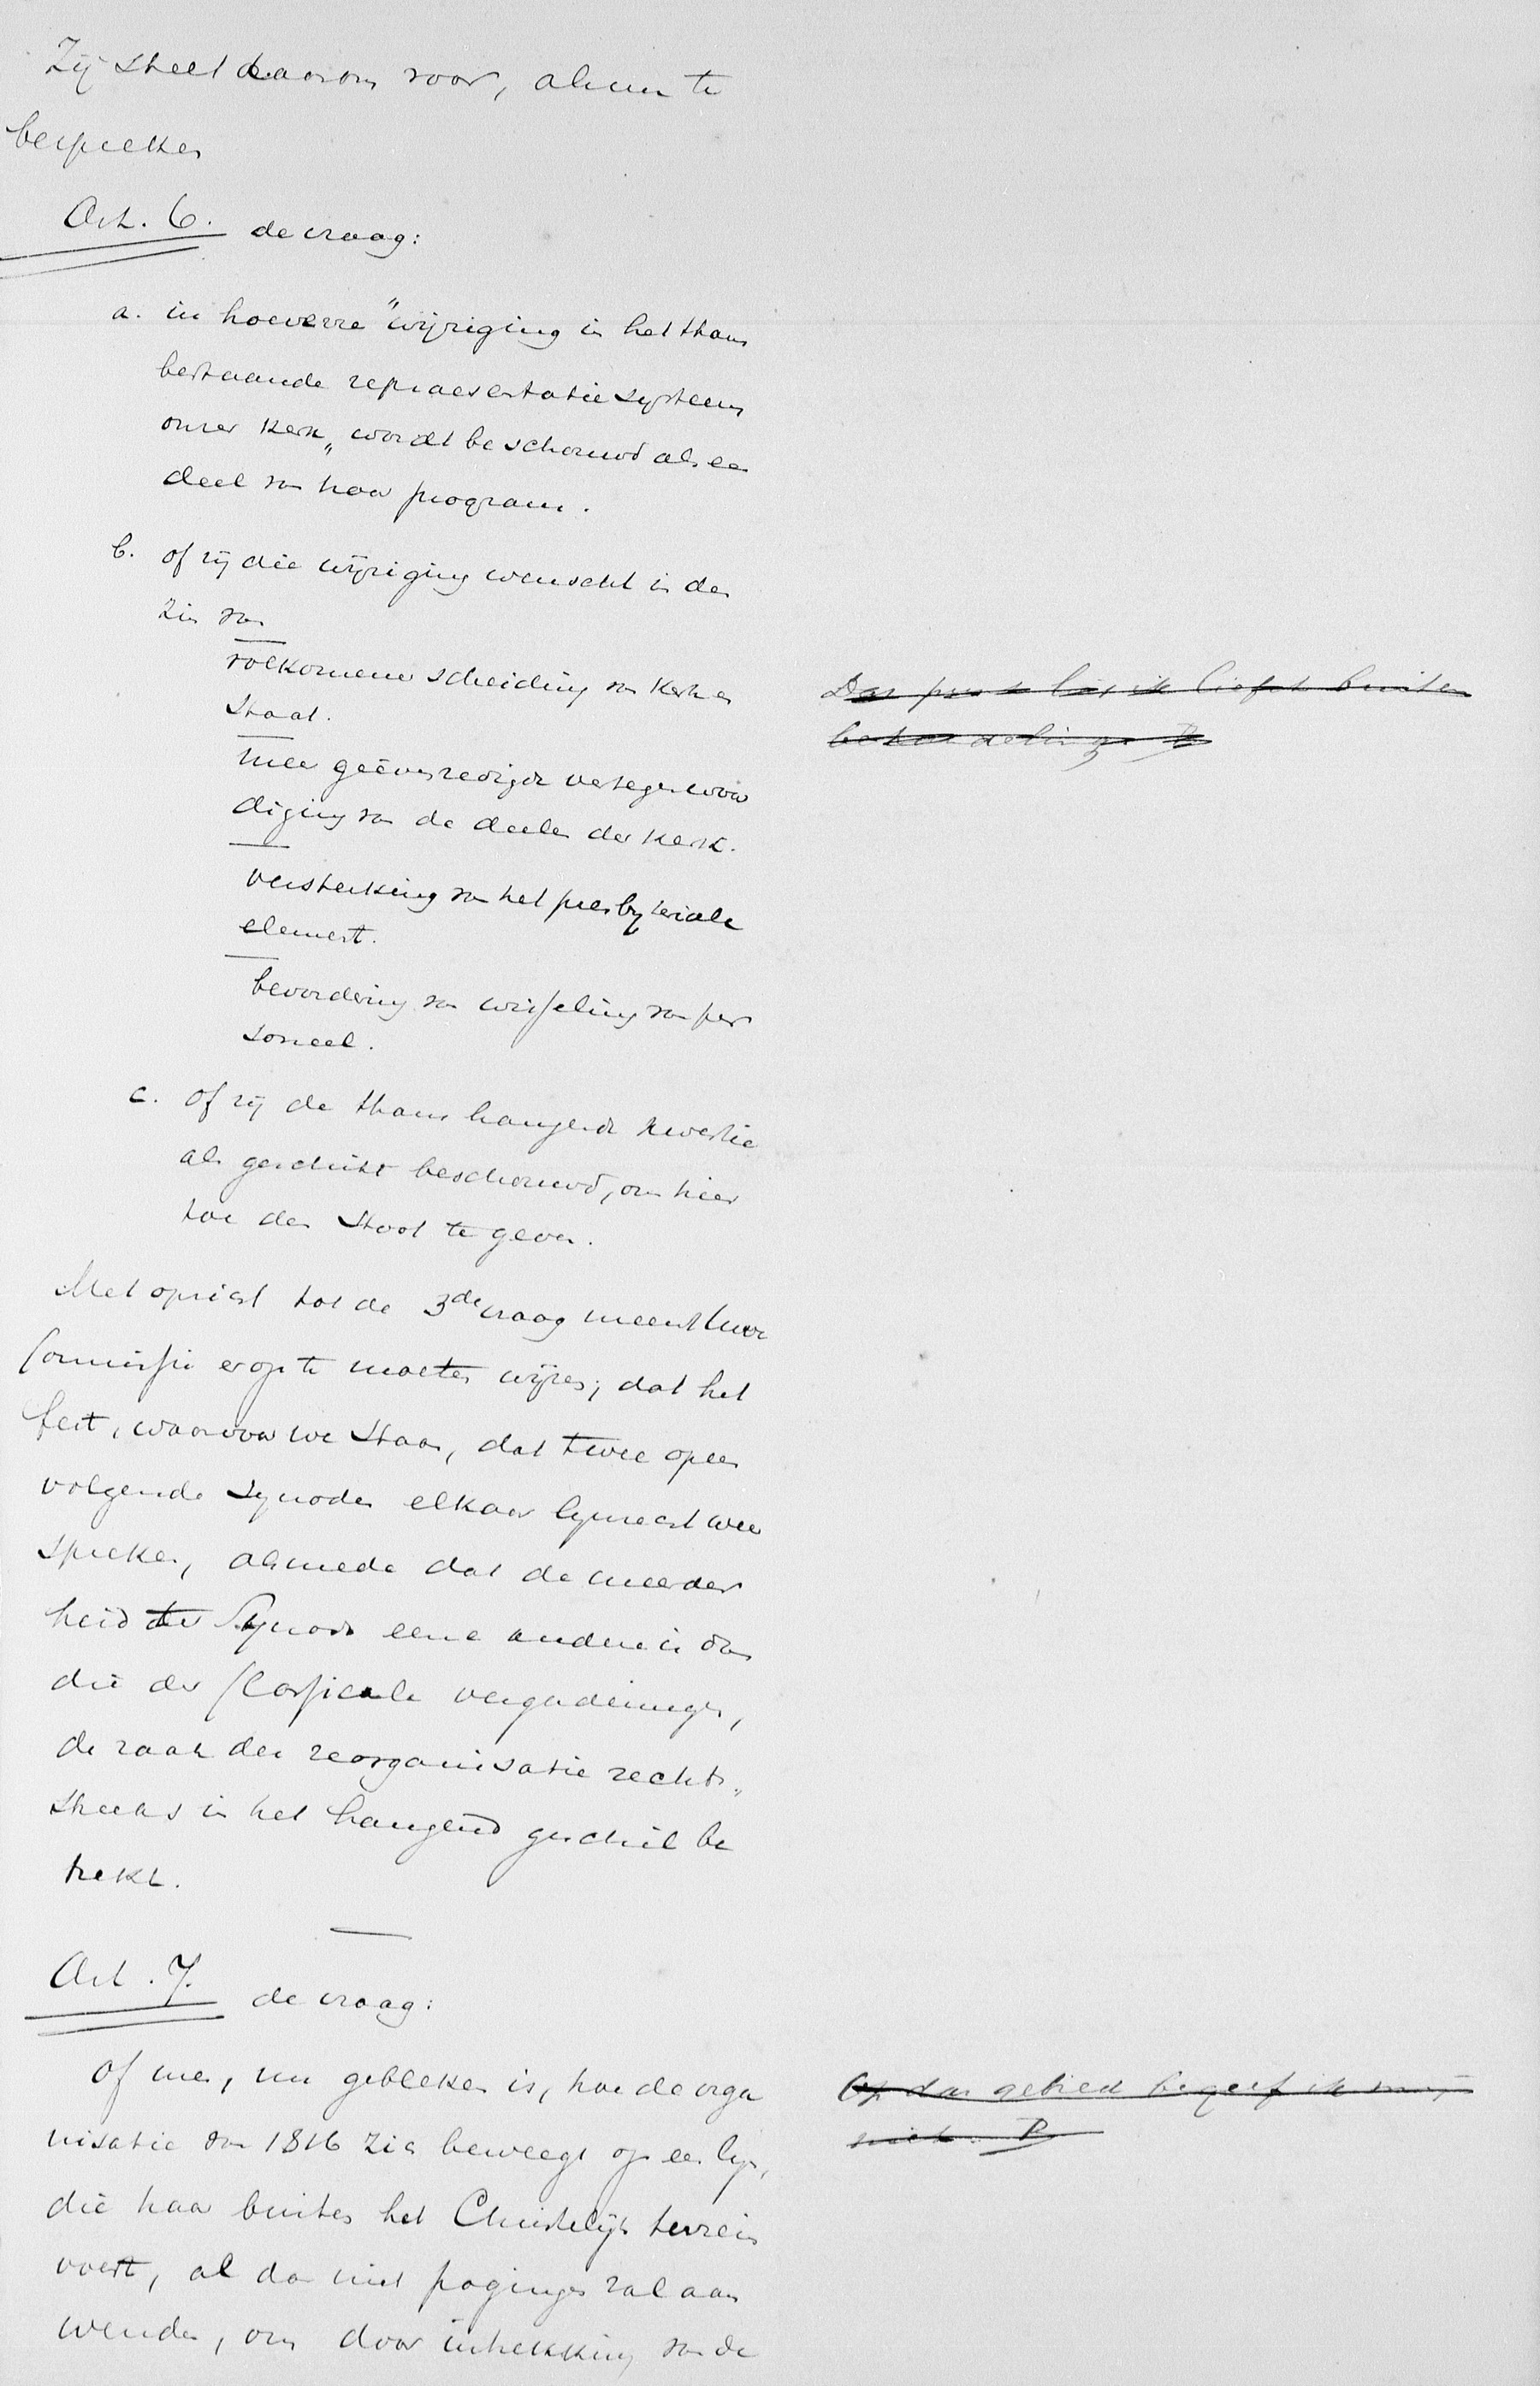 Zij stelt daarom voor, alsnu te
bespreken
Art. 6. de vraag:
a. in hoeverre "wijziging in het thans
bestaande repraesentatie systeem
onzer Kerk" wordt beschouwd als een
deel van haar program.
b. of zij die wijziging wenscht in den
zin van
volkomene scheiding van Kerk en
Staat.
meer geëvenredigde vertegenwoor
diging van de deelen der Kerk.
versterking van het presbyteriale
element.
bevordering van wisseling van per
soneel.
c. of zij de thans hangende kwestie
als geschikt beschouwd, om hier
toe den stoot te geven.
Met opzicht tot de 3de vraag meent Uwe
Commissie erop te moeten wijzen; dat het
feit, waarvoor we staan, dat twee opeen
volgende Synoden elkaar lijnrecht weer
spreken, alsmede dat de meerder
heid der Synode eene andere is dan
die der Classicale vergaderingen,
de zaak der reorganisatie rechts"
streeks in het hangend geschil be
trekt.
Art. 7. de vraag:
of men, nu gebleken is, hoe de orga
nisatie van 1816 zich beweegt op een lijn,
die haar buiten het Christelijk terrein
voert, al dan niet pogingen zal aan
wenden, om door intrekking van de
Dat punt laat ik liefst buiten
behandeling
Op dat gebied begeef ik mij
niet. P